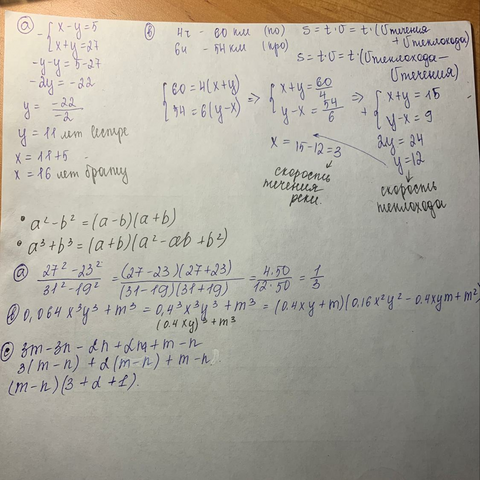 а) - { x - y = 5
x + y = 27
-y - y = 5 - 27
-2y = -22
y = -22/-2
y = 11 лет сестре
x = 11 + 5
x = 16 лет брату
в) 4ч - 60 км (по) S = t·υ = t·(υ течения + υ теплохода)
6ч - 54 км (про) S = t·υ = t·(υ теплохода - υ течения)
{ 60 = 4(x+y) => { x + y = 60/4 => + { x + y = 15
54 = 6(y-x) y - x = 54/6 y - x = 9
x = 15 - 12 = 3 2y = 24
y = 12
скорость течения реки.
скорость теплохода
• a² - b² = (a-b)(a+b)
• a³ + b³ = (a+b)(a² - ab + b²)
а) 27² - 23² / 31² - 19² = (27-23)(27+23) / (31-19)(31+19) = 4·50 / 12·50 = 1/3
в) 0,064x³y³ + m³ = 0,4³x³y³ + m³ = (0.4xy + m)(0.16x²y² - 0.4xym + m²)
(0.4xy)³ + m³
с) 3m - 3n - 2n + 2m + m - n
3(m-n) + 2(m-n) + m - n
(m-n)(3 + 2 + 1).